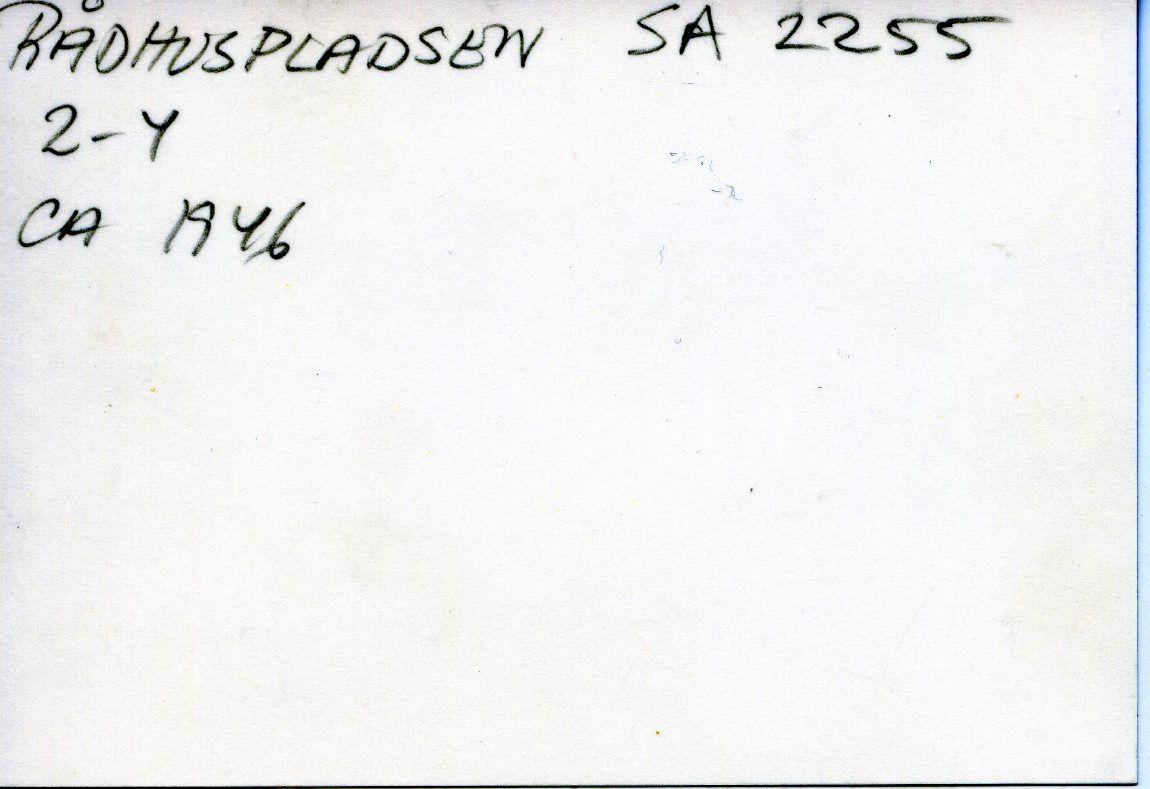 RÅDHUSPLADSEN SA 2255
2-4
CA 1946